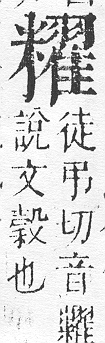 䊮
徒弔切音糶
說文穀也